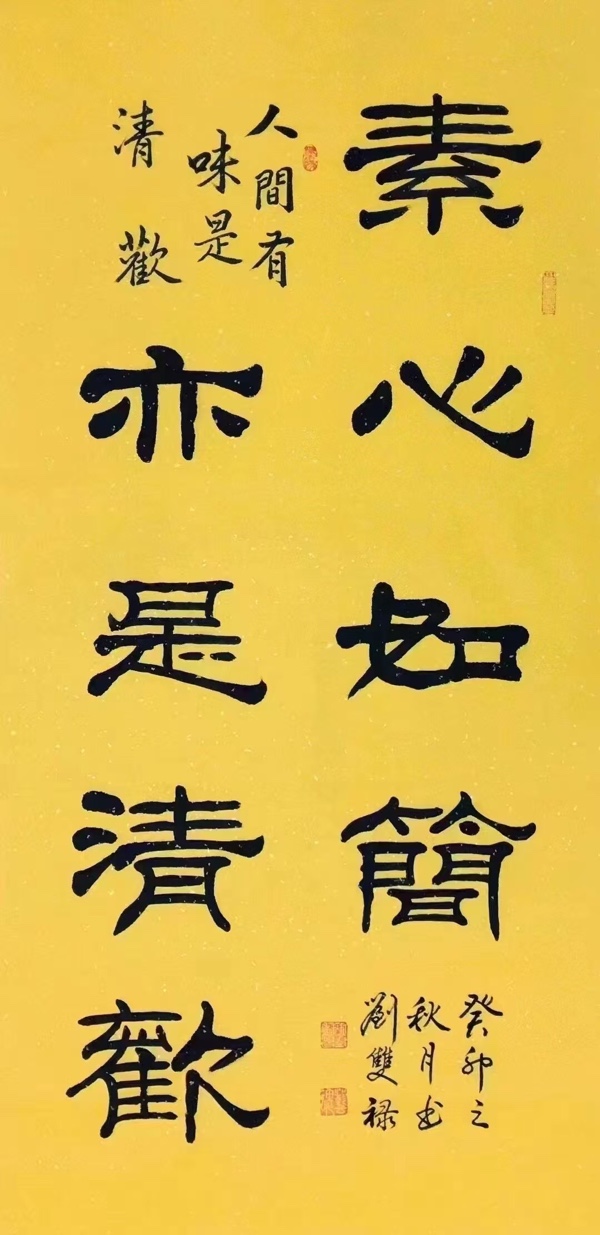 素心如簡
亦是清歡
人間有
味是
清歡
癸卯之
秋月书
劉雙禄